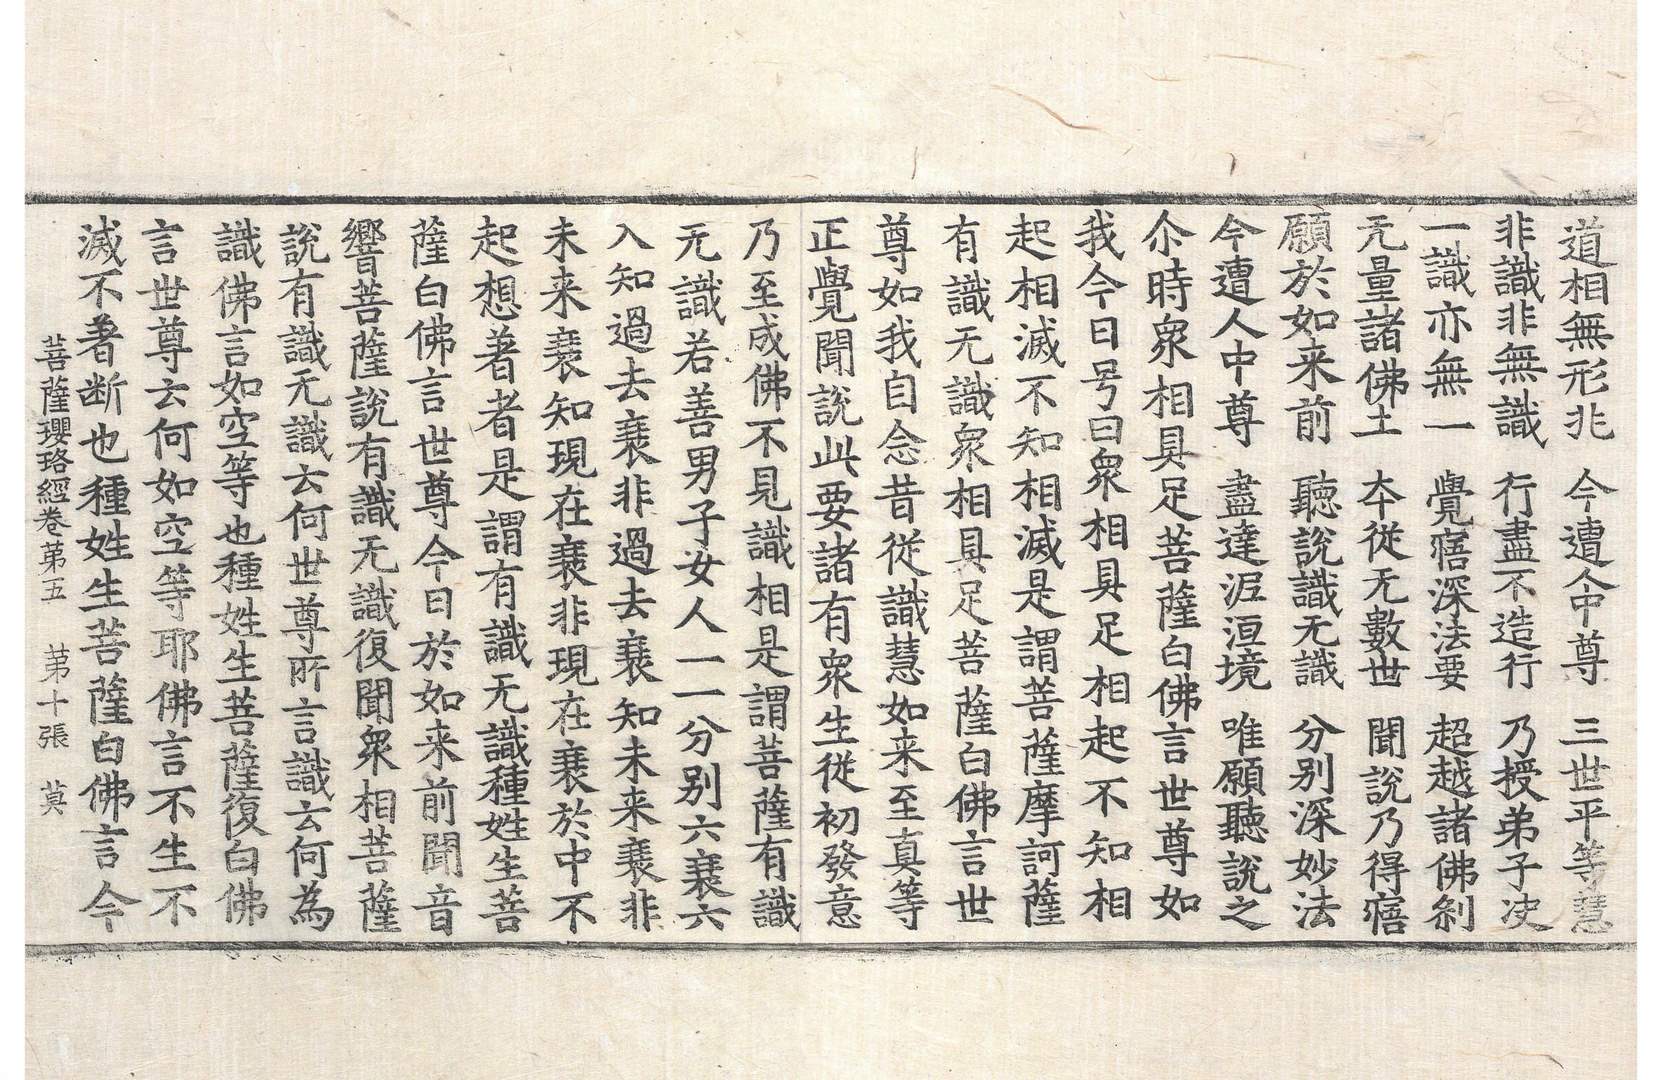 道相無形兆　今遭人中尊　三世平等慧
非識非無識　行盡不造行　乃授弟子决
一識亦無一　覺寤深法要　超越諸佛刹
无量諸佛土　本從无數世　聞說乃得寤
願於如来前　聽說識无識　分別深妙法
今遭人中尊　盡達泥洹境　唯願聽說之
尒時衆相具足菩薩白佛言世尊如
我今日号曰衆相具足相起不知相
起相滅不知相滅是謂菩薩摩訶薩
有識无識衆相具足菩薩白佛言世
尊如我自念昔從識慧如来至真等
正覺聞說此要諸有衆生從初發意
乃至成佛不見識相是謂菩薩有識
无識若善男子女人一一分別六衰六
入知過去衰非過去衰知未来衰非
未来衰知現在衰非現在衰於中不
起想著者是謂有識无識種姓生菩
薩白佛言世尊今日於如来前聞音
響菩薩說有識无識復聞衆相菩薩
說有識无識云何世尊所言識云何為
識佛言如空等也種姓生菩薩復白佛
言世尊云何如空等耶佛言不生不
滅不著断也種姓生菩薩白佛言今
菩薩瓔珞經卷第五　第十張　莫